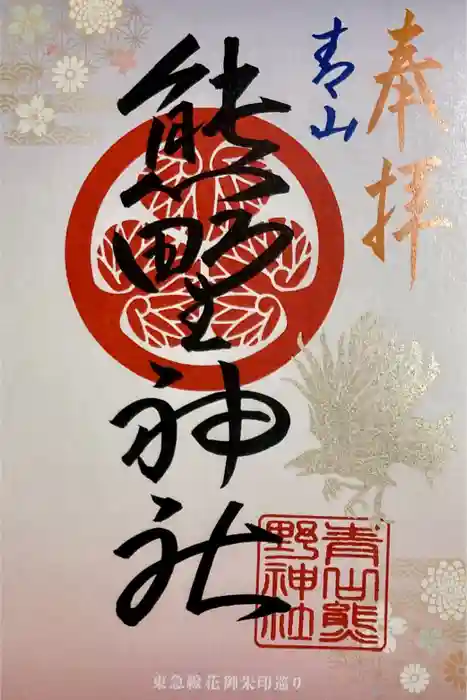 奉拝
青山
熊野神社
青山熊
野神社
東急線花御朱印巡り